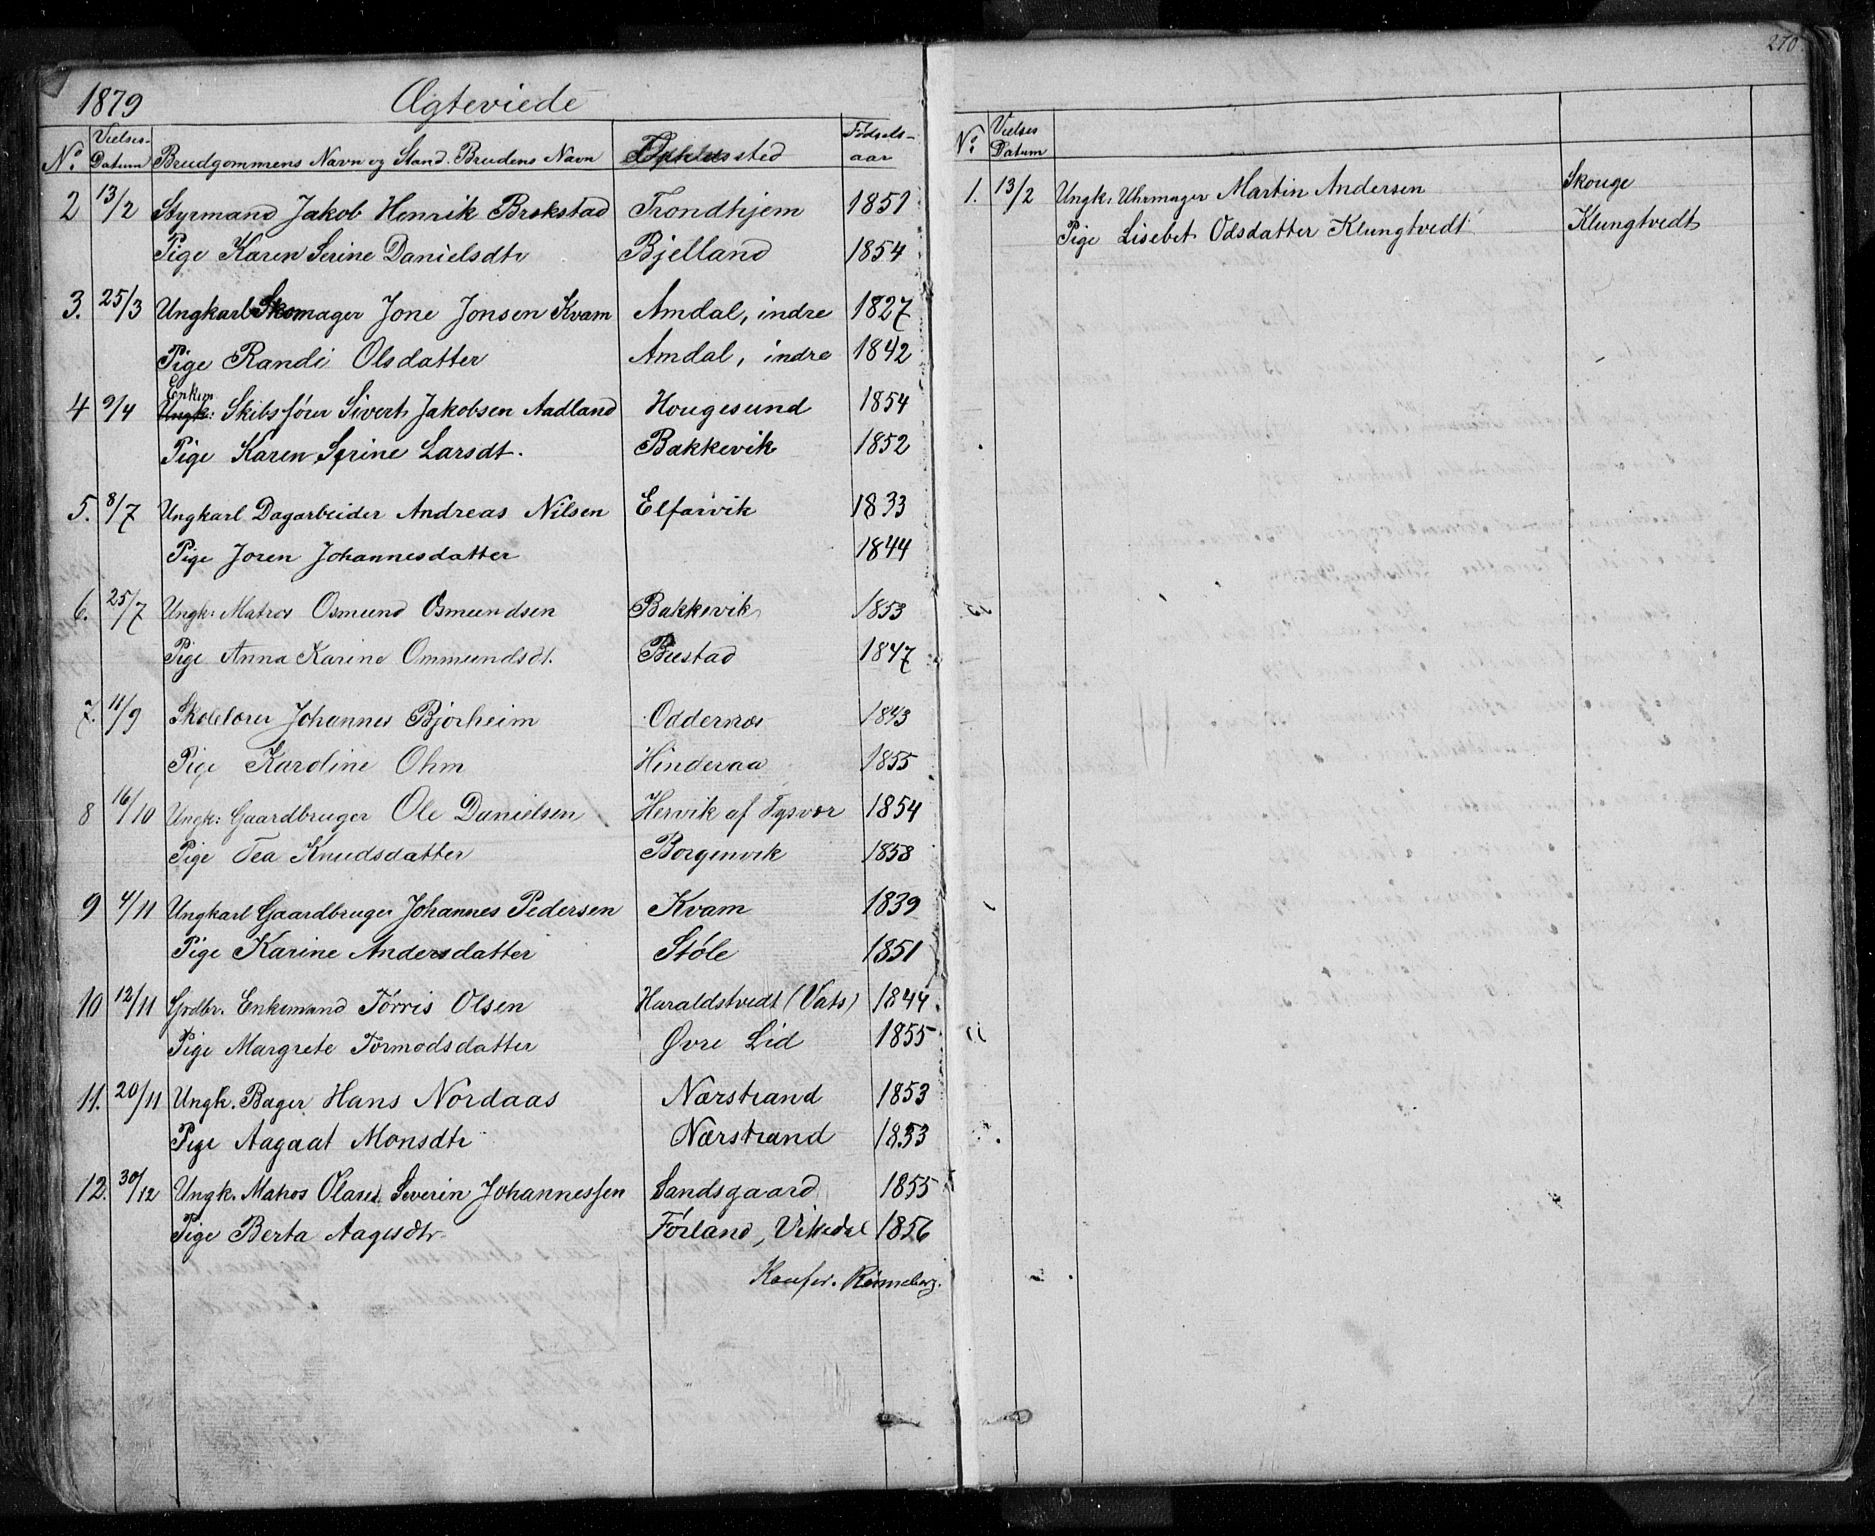 1879 Ægteviede
No. Vielses-Datum Brudgommens Navn og Stand. Brudens Navn sted Fødsels-aar
2 13/2 Styrmand Jakob Henrik Brokstad Trondhjem 1851
Pige Karen Serine Danielsdtr Bjelland 1854
3. 25/3 Ungkarl Skomager Jone Jonsen Kvam Amdal, indre 1827
Pige Randi Olsdatter Amdal, indre 1842
Enkem
4 9/4 Ungk: Skibsfører Sivert Jakobsen Aadland Hougesund 1854
Pige Karen Serine Larsdt. Bakkevik 1852
5. 8/7 Ungkarl Dagarbeider Andreas Nilsen Elfarvik 1833
Pige Joren Johannesdatter 1844
6. 25/7 Ungk: Matros Osmund Osmundsen Bakkevik 1853
Pige Anna Karine Ommundsdt. Bustad 1847
7. 11/9 Skolelærer Johannes Bjorheim Oddernæs 1843
Pige Karoline Ohm Hinderaa 1855
8 16/10 Ungk: Gaardbruger Ole Danielsen Hervik af Tysvær 1854
Pige Tea Knudsdatter Borgenvik 1858
9 4/11 Ungkarl Gaardbruger Johannes Pedersen Kvam 1839
Pige Karine Andersdatter Støle 1851
10 12/11 Grdbr. Enkemand Tørris Olsen Haraldstvedt (Vats) 1844
Pige Margrete Tormodsdatter Øvre Lid 1855
11. 20/11 Ungk. Bager Hans Nordaas Nærstrand 1853
Pige Aagaat Monsdtr Nærstrand 1853
12. 30/12 Ungk. Matros Olaus Severin Johannessen Sandsgaard 1855
Pige Berta Aagesdtr. Førland, Vikedal 1856
Konfer. Rønneberg.
270
No. Vielses Datum
1. 13/2 Ungk. Uhrmager Martin Andersen Skouge
Pige Lisebet Odsdatter Klungtvedt Klungtvedt